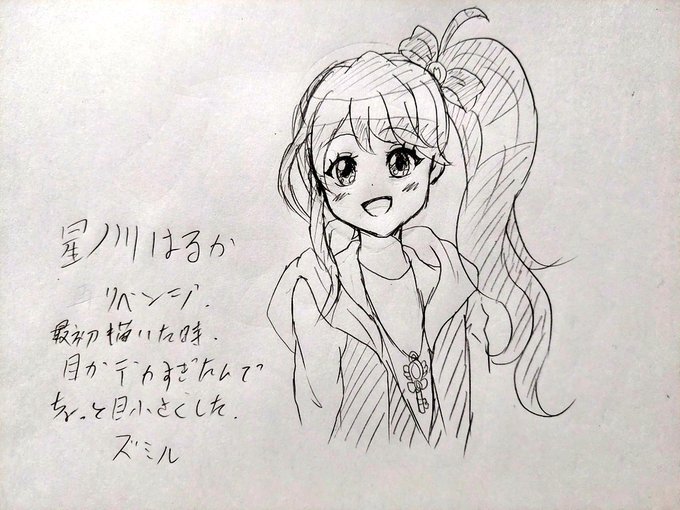 星ノ川はるか
リベンジ.
最初描いた時.
目がデカすぎたんで
ちょっと目小さくした.
ズミル